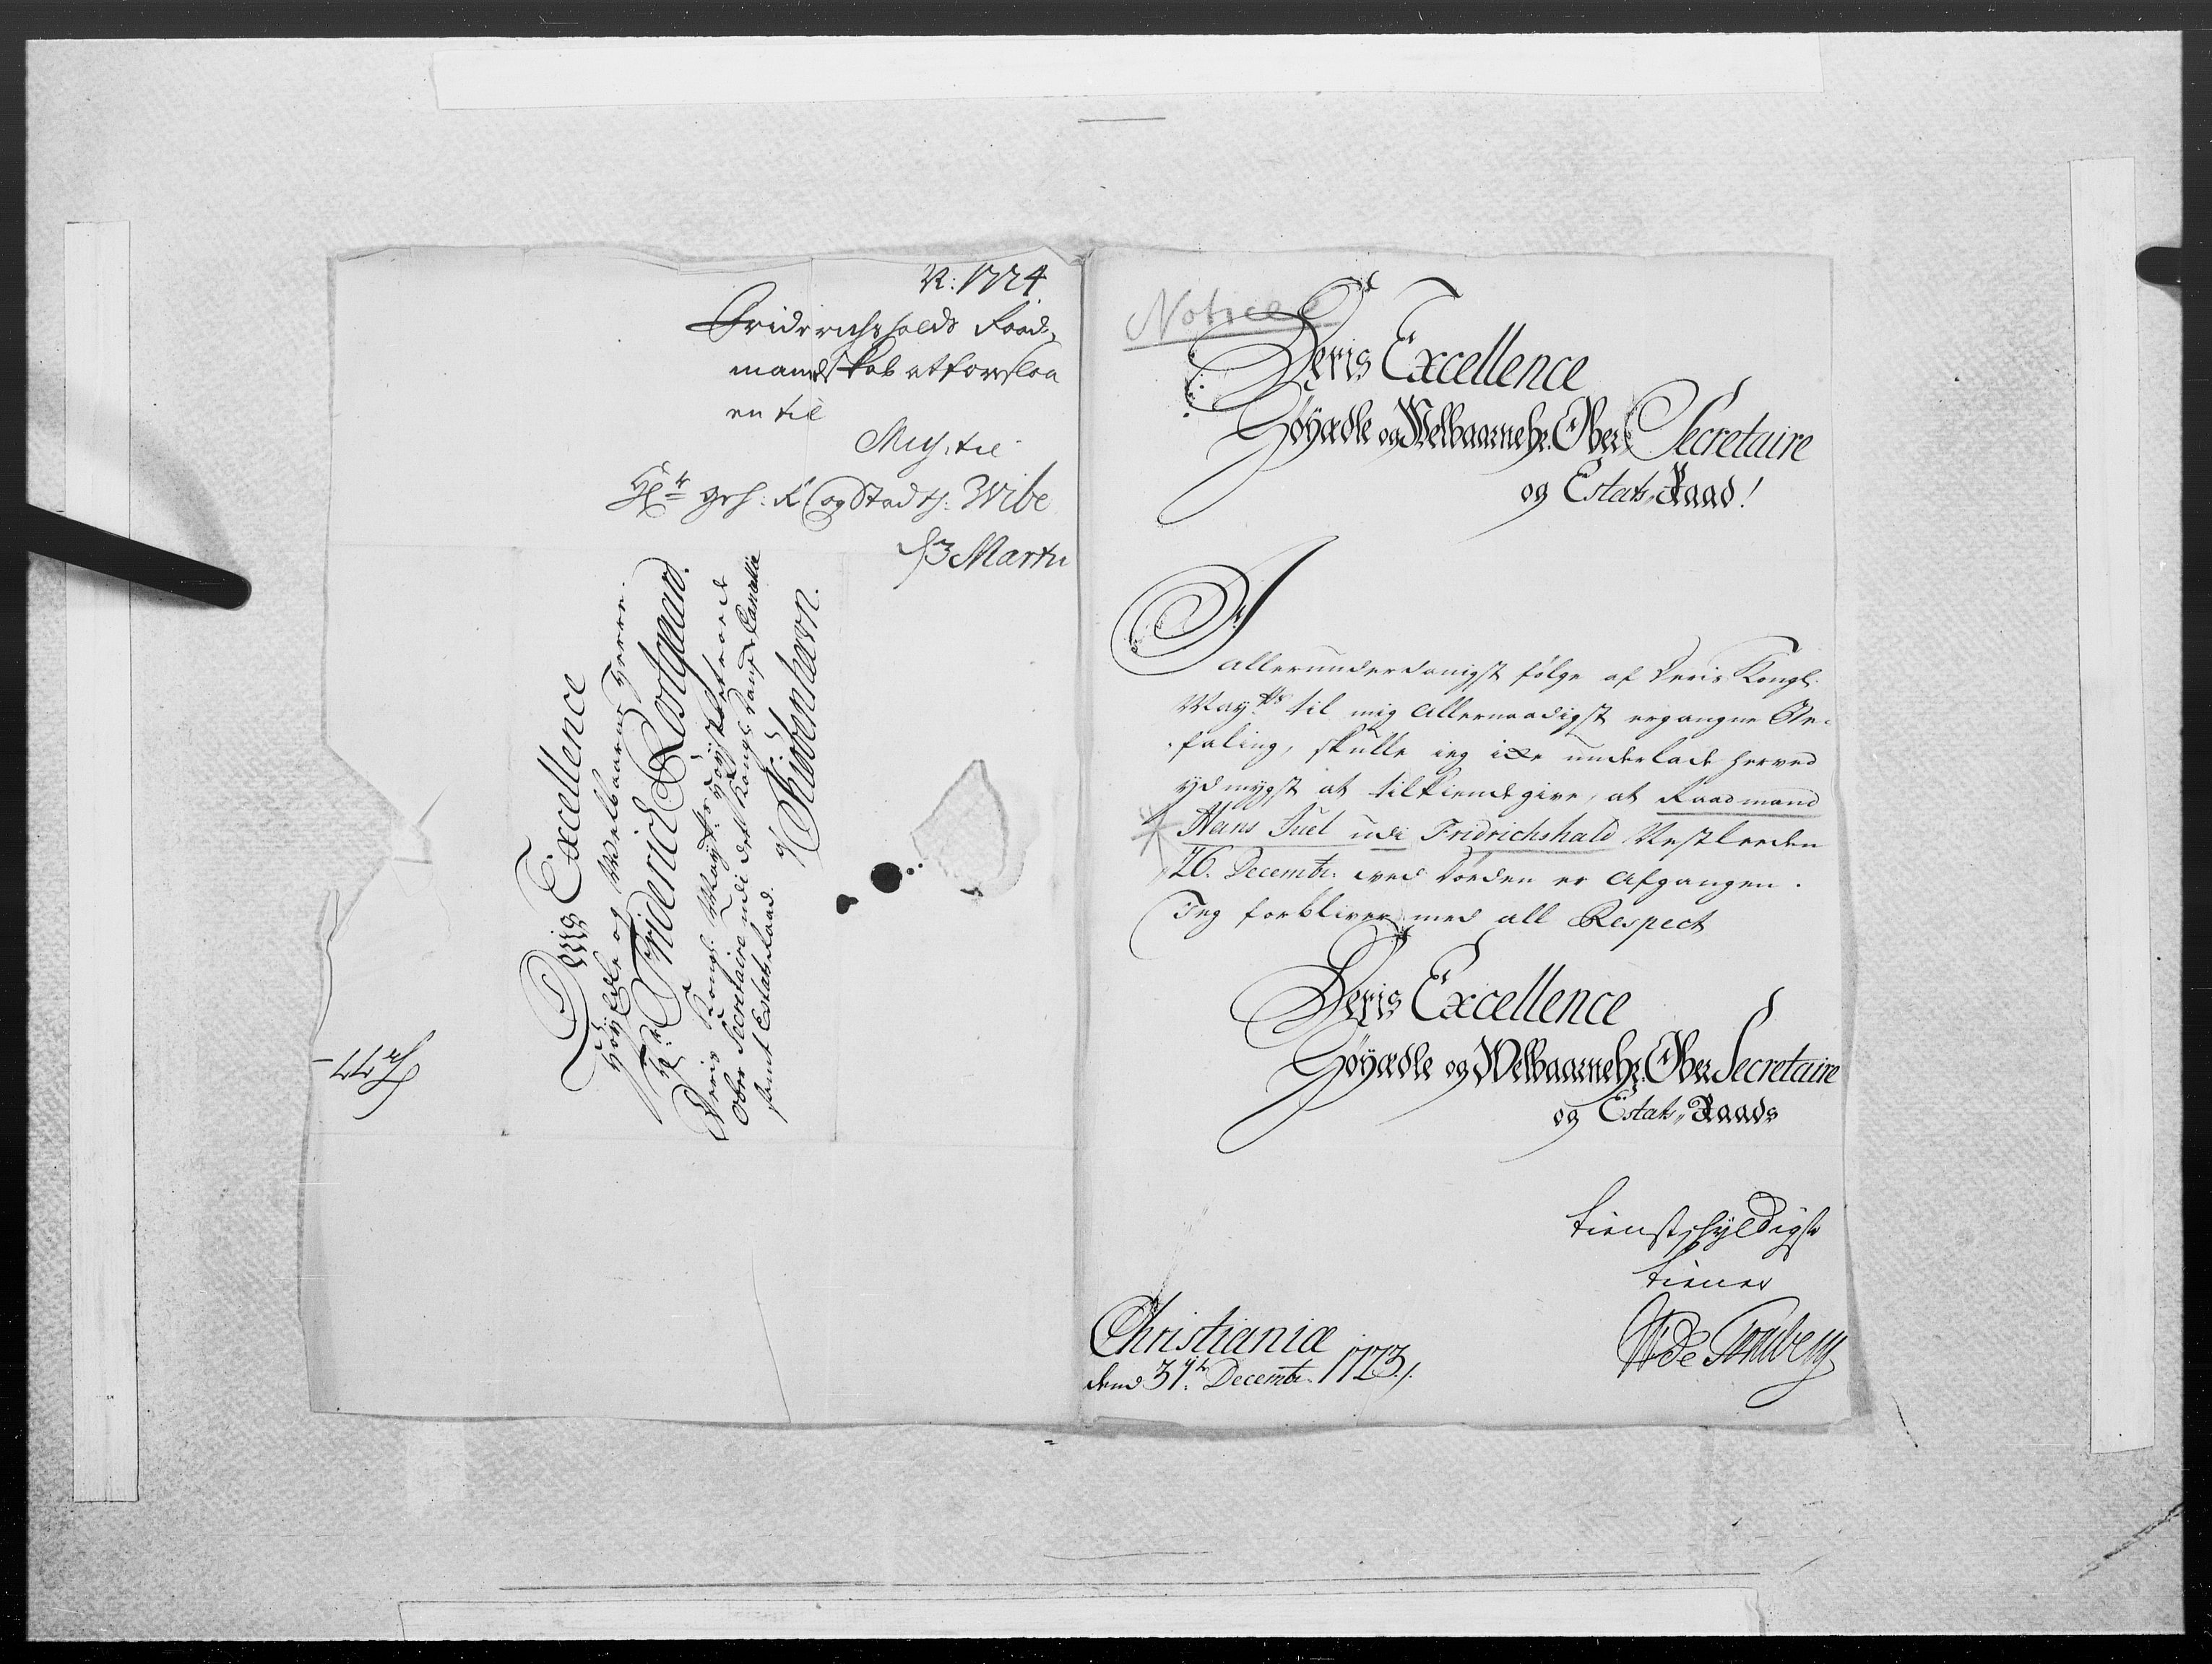 N: 1724
Friderichshalds Raad-
mandskab at forslaa
en til
Miss: til
H.r geh: R og Stadth: Wibe
d 3 Martii
Deris Excellence
Höyædle og Welbaarne Herre
Hr. Friderich Rostgaard
Deris Kongl: Mayts: Höyt betroede
Ober Secretaire udi det Kongl: Danske Cancellie
samt Estats Raad.
a Kiöbenhavn.
Notice
Deris Excellence
Höyædle og Welbaarne Hr. Ober Secretaire
og Estats-Raad!
I
allerunderdanigst fölge af Deris Kongl:
May.ts til mig Allernaadigst ergangne Be-
faling, skulle ieg icke underlade herved
ydmygst at tilkiendegive, at Raadmand
Hans Juel udi Fridrichshald Nestleeden
26. Decembr. ved Döden er Afgangen.
Jeg forbliver med all Respect
Deris Excellence
Höyædle og Welbaarne Hr. Ober Secretaire
og Estats-Raads
tienstskyldigste
tiener
Christiania
dend 31.te Decembr. 1723.
W de Tonsberg